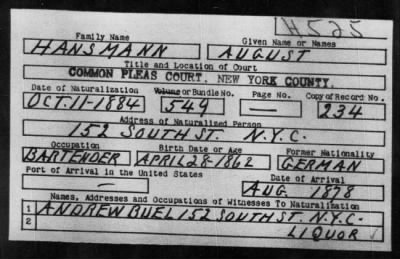 H525
Family Name Given Name or Names
HANSMANN AUGUST
Title and Location of Court
COMMON PLEAS COURT, NEW YORK COUNTY.
Date of Naturalization Volume or Bundle No. Page No. Copy of Record No.
OCT. 11-1884 549 — 234
Address of Naturalized Person
152 SOUTH ST. N.Y.C.
Occupation Birth Date or Age Former Nationality
BARTENDER APRIL 28-1862 GERMAN
Port of Arrival in the United States Date of Arrival
— AUG 1878
Names, Addresses and Occupations of Witnesses To Naturalization
1 ANDREW BUEL 152 SOUTH ST. N.Y.C.
2 LIQUOR